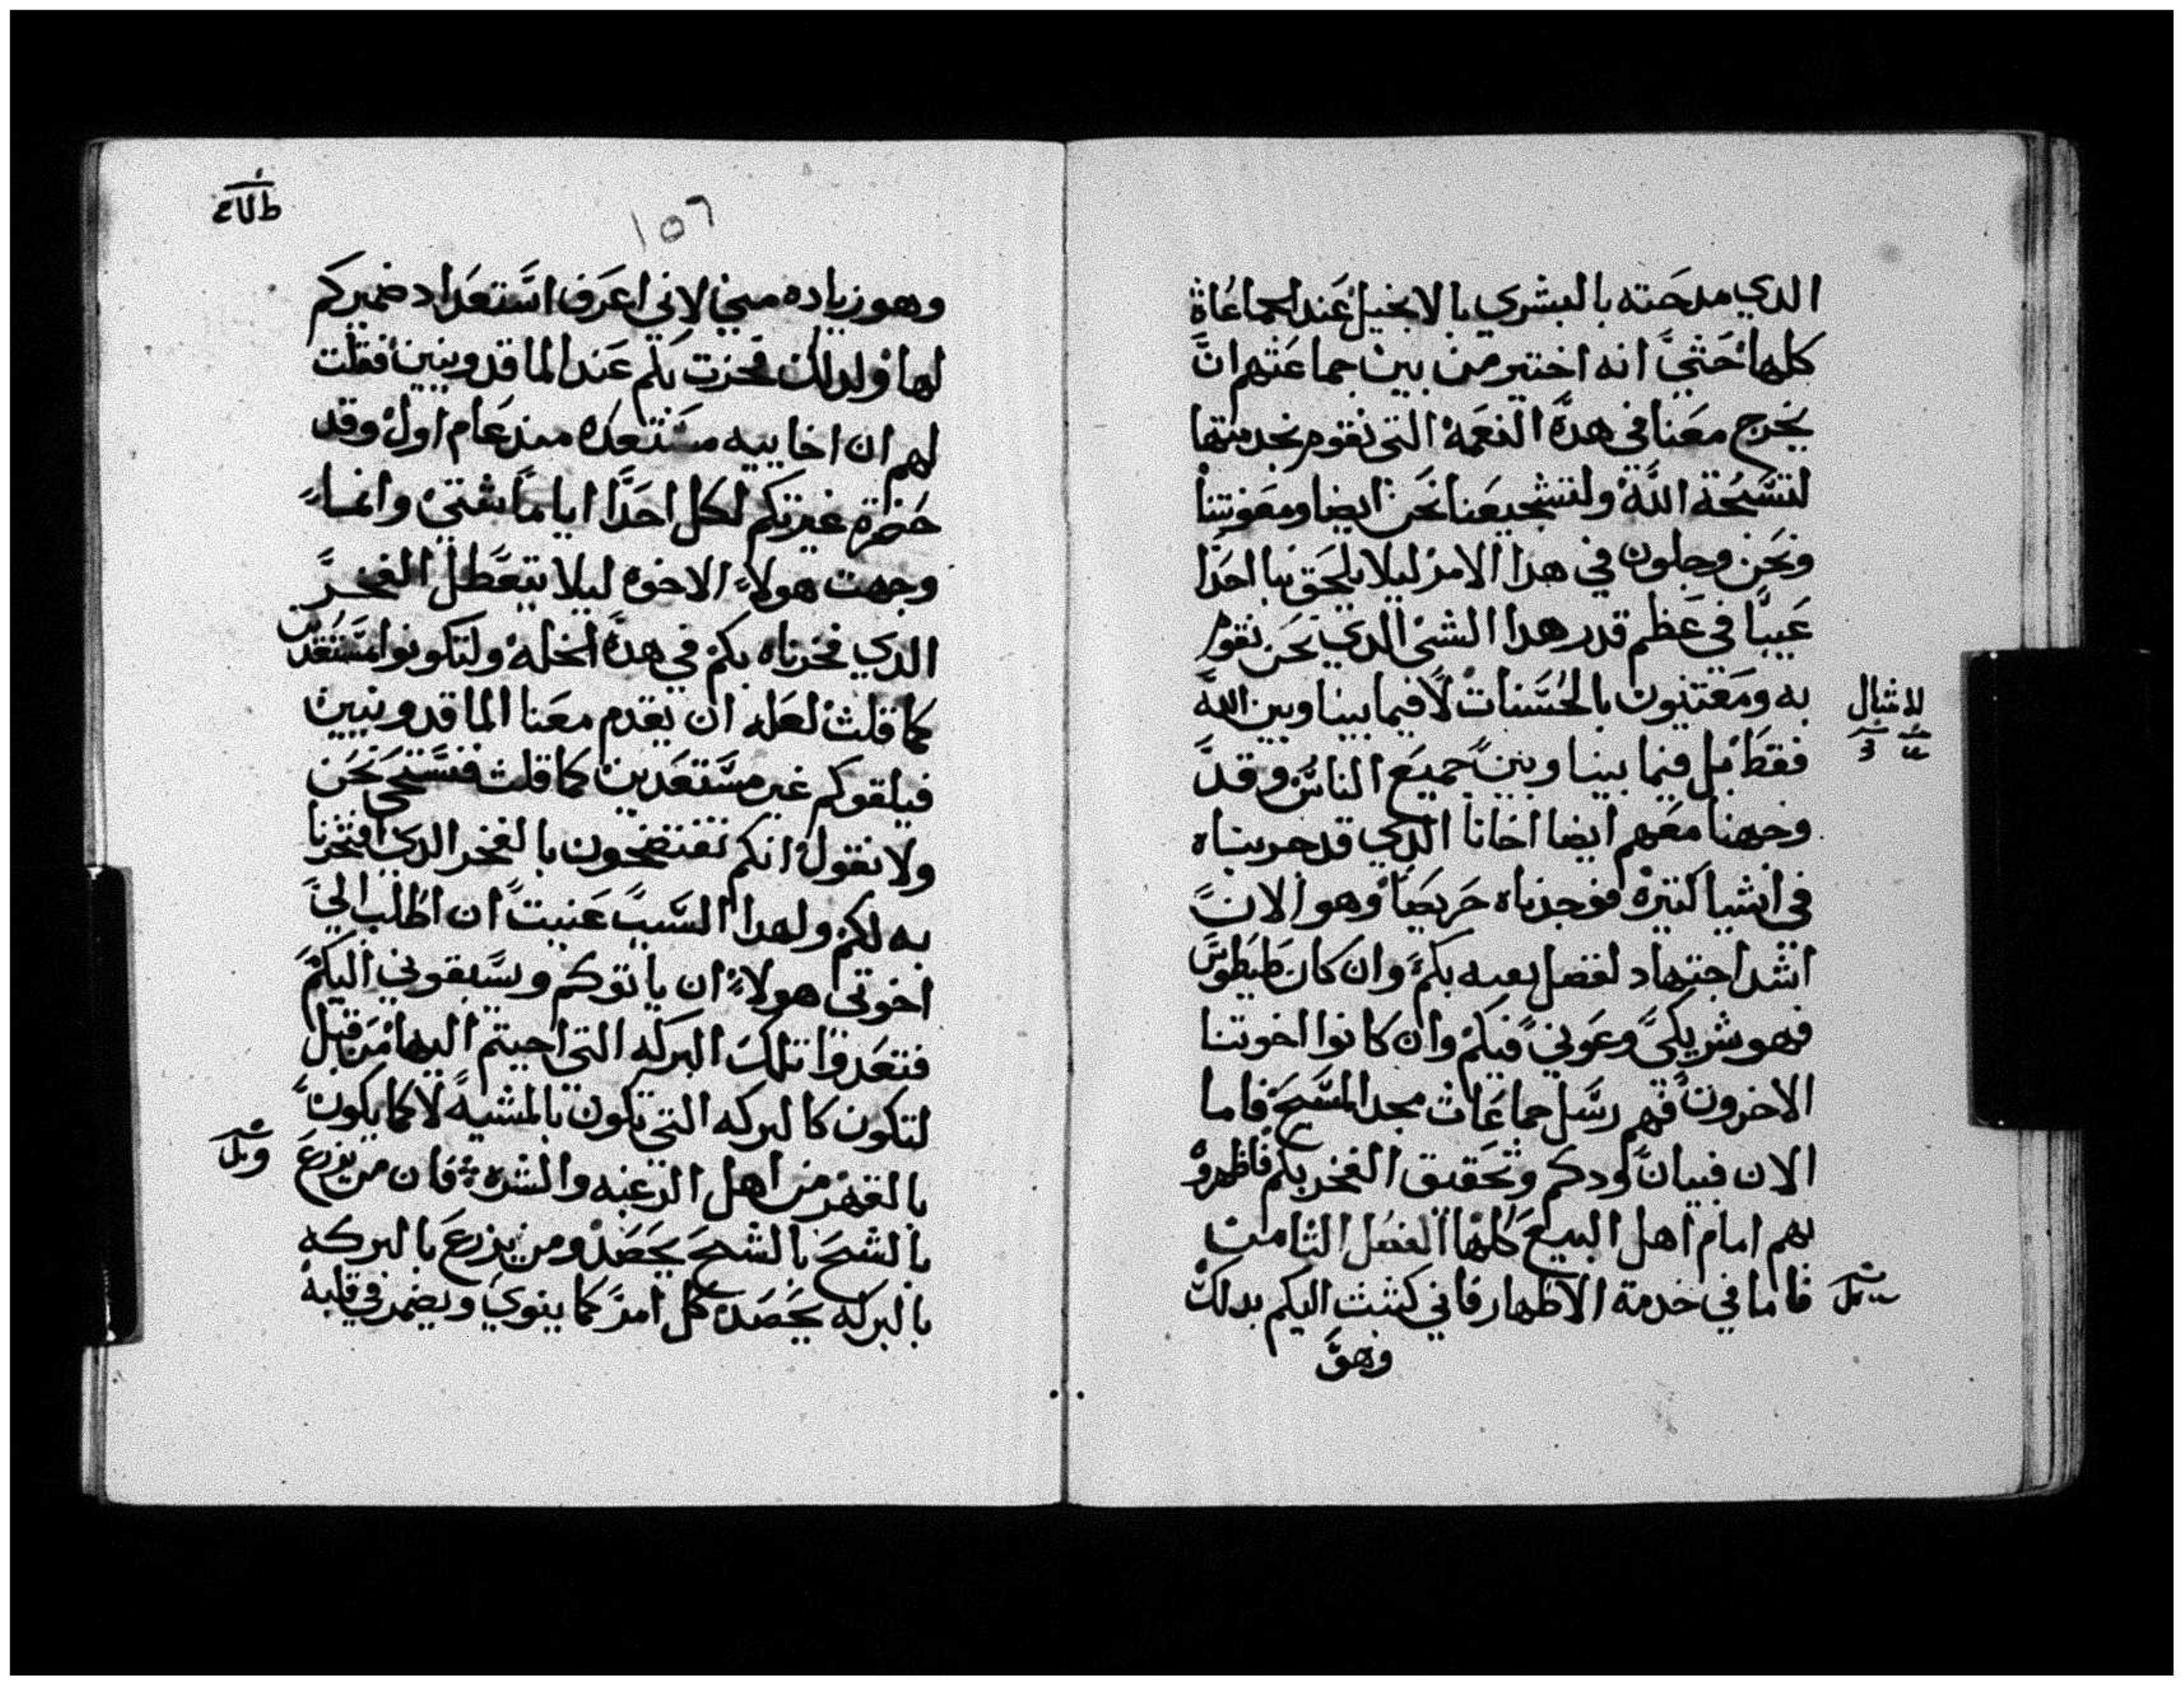 الدي مدحته بالبشري بالانجيل عند الجماعاة
كلها حتي انه اختير من بين جماعتهم ان
يخرج معنا في هده النعمه التي نقوم بخدمتها
لتسبحة الله ولتشجيعنا نحن ايضا ومعونتنا
ونحن وجلون في هدا الامر ليلا يلحق بنا احدا
عيبا في عظم قدر هدا الشي الدي نحن نقوم
به ومعتنيون بالحسنات لا فيما بيننا وبين الله
للامثال
فقط بل فيما بيننا وبين جميع الناس وقد
وجهنا معهم ايضا اخانا الدي قد جربناه
في اشيا كثيره فوجدناه حريصا وهو الان
اشد اجتهاد لفضل بكم وان كان طيطوس
فهو شريكي وعوني فيكم وان كانوا اخوتنا
الاخرون فهم رسل جماعات مجد المسيح فاما
الان فبيان ودكم وتحقيق الفخر بكم فاظهروا
بهم امام اهل البيع كلها الفصل الثامن
فاما في خدمة الاظهار فاني كتبت اليكم بدلك
وهو
١٥٦
وهو زياده مني لاني اعرف استعداد ضميركم
لها ولدلك فخرت بكم عند الماقدونيين فقلت
لهم ان اخاييه مستعده مند عام اول وقد
غيرتكم لكل احدا اياما شتي وانما
وجهت هولا الاخوه ليلا يتعطل الفخر
الدي فخرناه بكم في هده الخله ولتكونوا مستعدين
كما قلت لعله ان يقدم معنا الماقدونيين
فيلقوكم غير مستعدين كما قلت فنستحي نحن
ولا نقول انكم تفتضحون بالفخر الدي افتخرنا
به لكم ولهدا السبب عنيت ان اطلب الي
اخوتي هولا ان ياتوكم ويسبقوني اليكم
فتعدوا تلك البركه التي اجبتم اليها من قبل
لتكون كالبركه التي تكون بالمشيه لا كما يكون
بالقهر من اهل الرغبه والشره فان من يزرع
بالشح بالشح يحصد ومن يزرع بالبركه
بالبركه يحصد كل امر كما ينوي ويضمر في قلبه